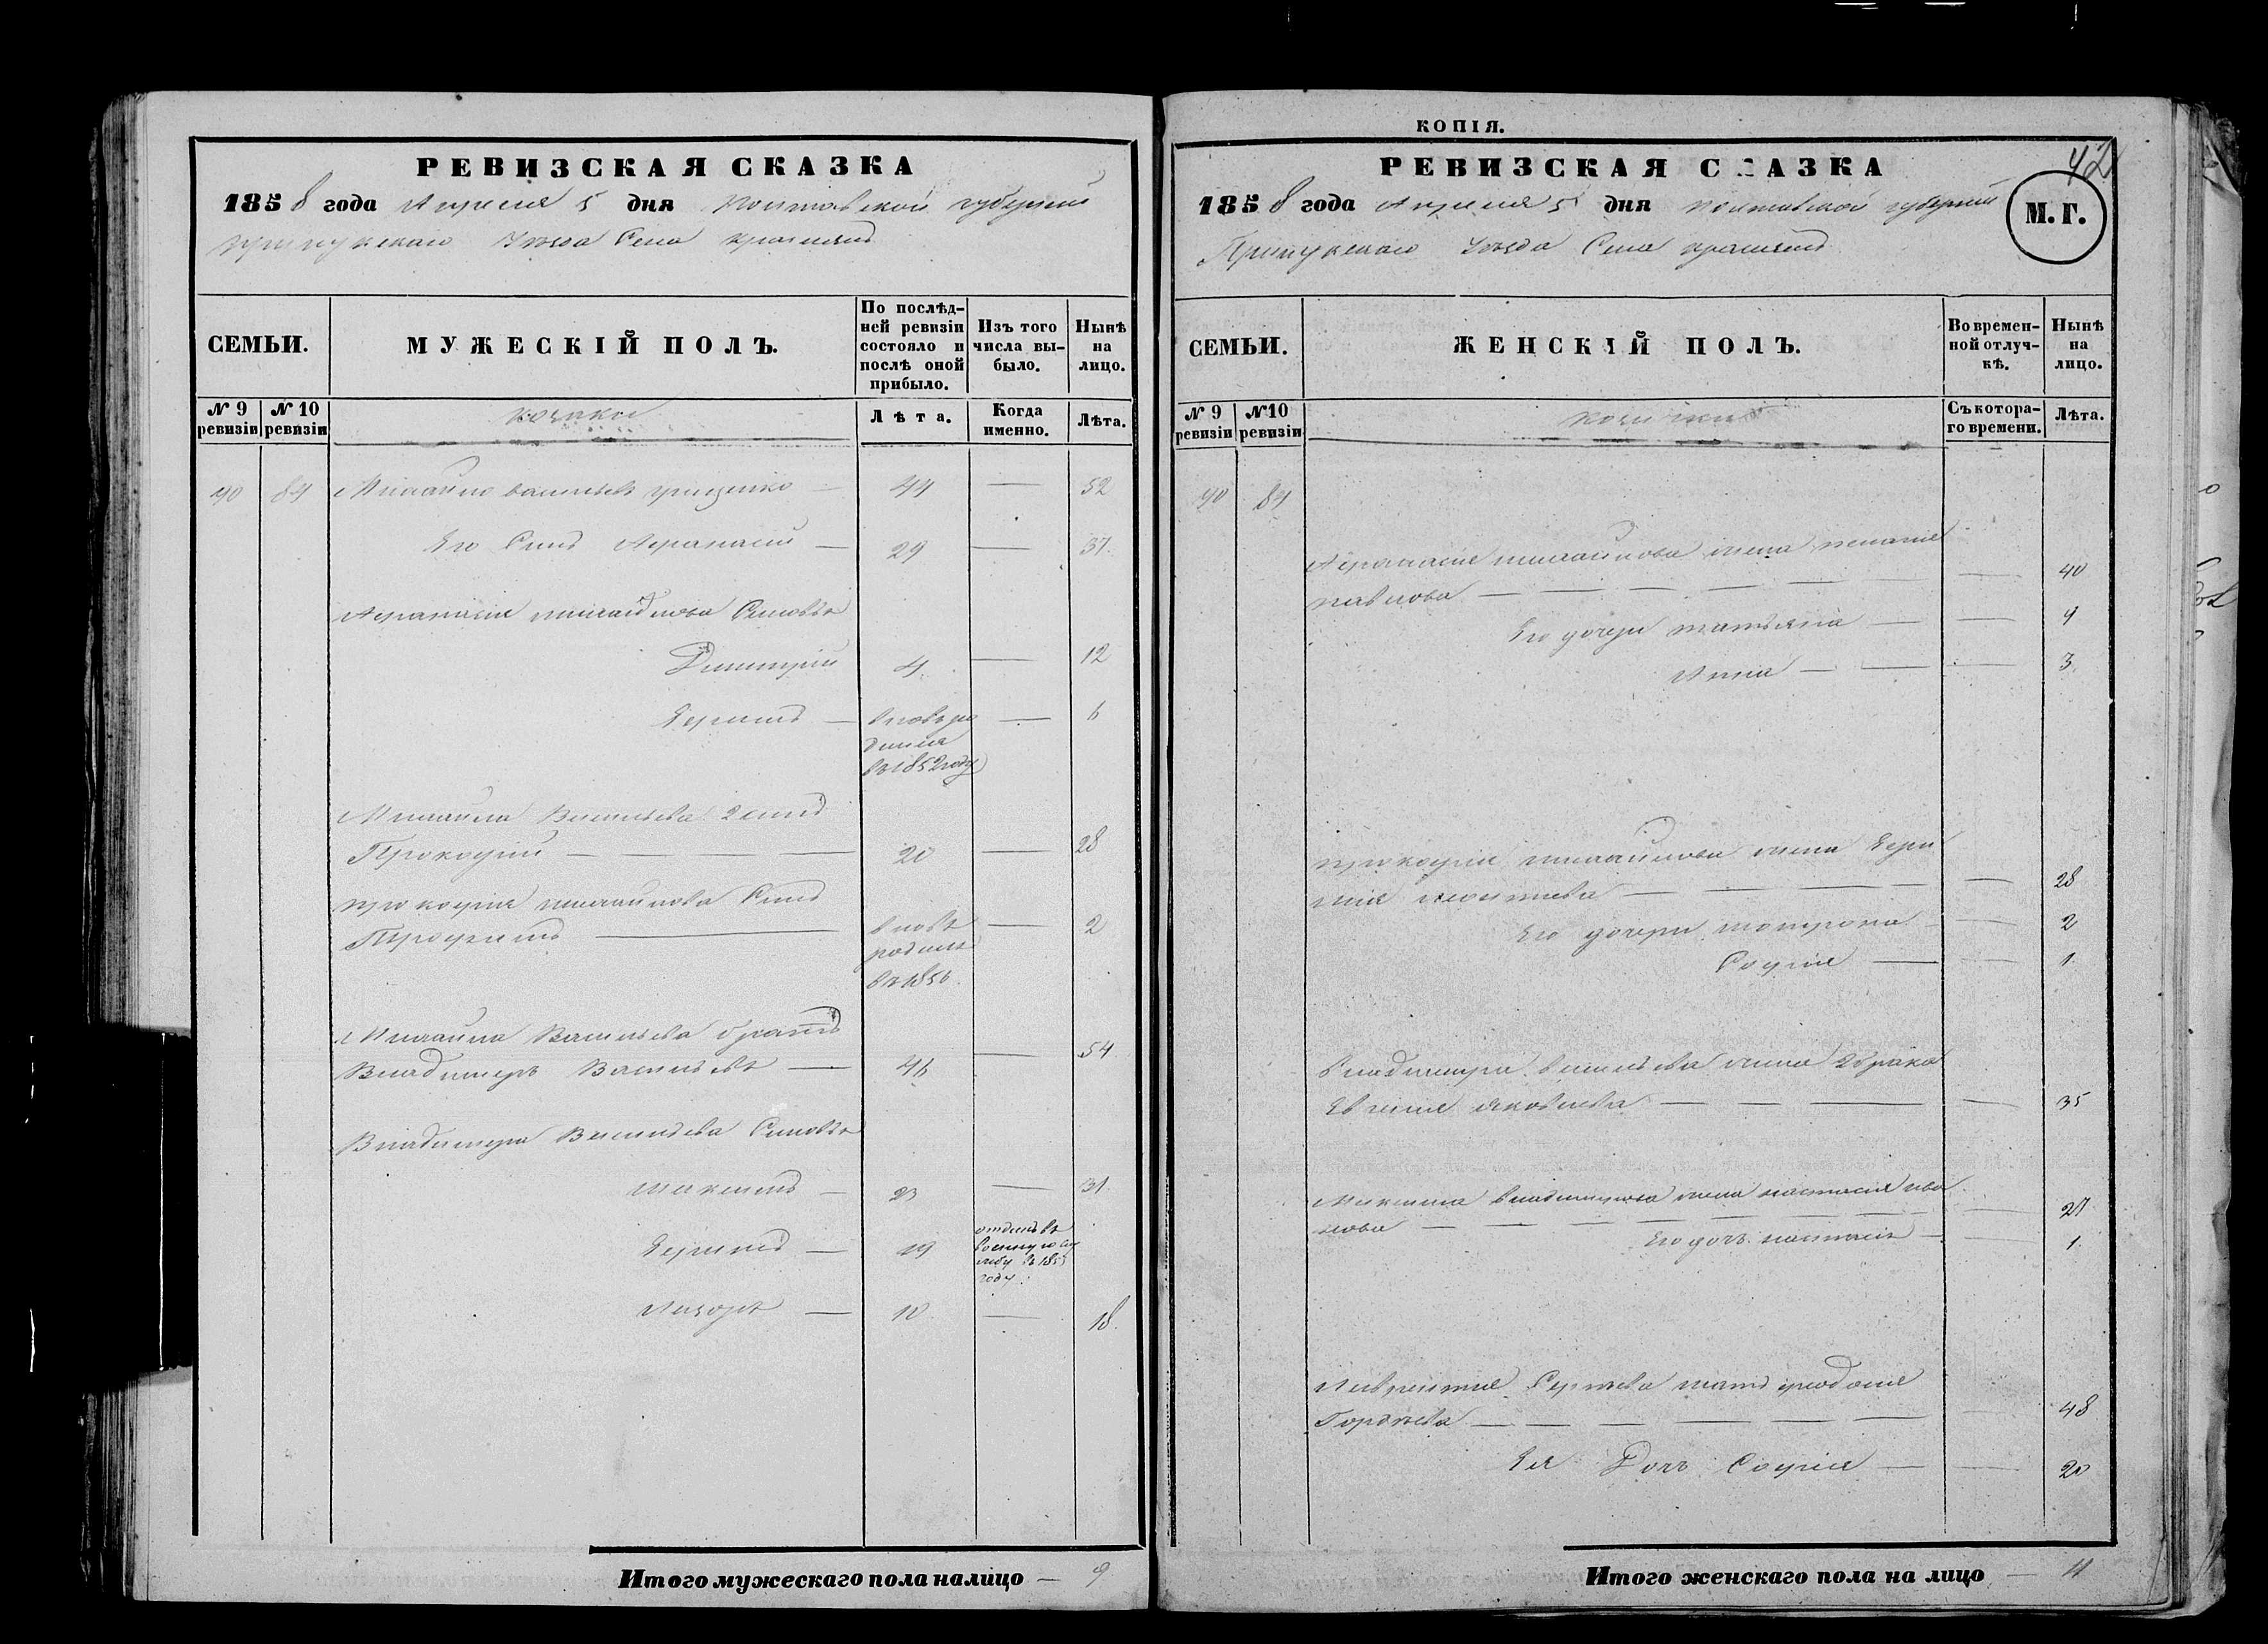 РЕВИЗСКАЯ СКАЗКА
1858 года Апреля 5 дня Полтавской губернии
Прилукскаго Уезда Села
СЕМЬИ.
МУЖЕСКІЙ ПОЛЪ.
По послѣд-
ней ревизіи
состояло и
послѣ оной
прибыло.
Изъ того
числа вы-
было.
Нынѣ
на
лицо.
№ 9
ревизіи
№ 10
ревизіи
козаки
Лѣта.
Когда
именно.
Лѣта.
90 84 Михайло Васильевъ Грищенко — 44 — 52
Его Сынъ Афанасій — 29 — 37.
Афанасія Михайлова Сыновья
Димитрій 4 — 12
Ефимъ — вновь ро — 6
дился
въ 1852 году
Михайла Васильева 2 сынъ
Прокофій — 20 — 28
Прокофія Михайлова Сынъ
Трофимъ — вновь — 2
родился
въ 1856.
Михайла Васильева братъ
Владимеръ Васильевъ — 46 — 54
Владимера Васильева Сыновья
Максимъ — 23 — 31.
— 19 отданъ въ
военную слу
жбу въ 1855
году.
Лазарь — 10 — 18.
Итого мужескаго пола налицо — 9
КОПІЯ.
42
РЕВИЗСКАЯ СКАЗКА
М. Г.
1858 года Апреля 5 дня Полтавской губерніи
Прилукскаго Уезда Села
СЕМЬИ.
ЖЕНСКІЙ ПОЛЪ.
Во времен-
ной отлуч-
кѣ.
Нынѣ
на
лицо.
№ 9
ревизіи
№10
ревизіи
козачки
Съ котора-
го времени.
Лѣта.
90 84
Афанасія Михайлова жена
Павлова — — 40
Его дочери Татьяна — — 9
Анна — — 3.
Прокофія Михайлова жена Ефи
мія — — 28
Его дочери Мотрона — 2
Софія — — 1.
Владимера Васильева жена 2 брака
Евгенія Яковлева — — 35
Максима Владимирова жена Настасія Ива
нова — — 27
Его дочь Настасія — — 1.
Лаврентія Сергѣева мать Феодосія
Гордѣева — — 48
Ея Дочь Софія — — 20
Итого женскаго пола на лицо — 11